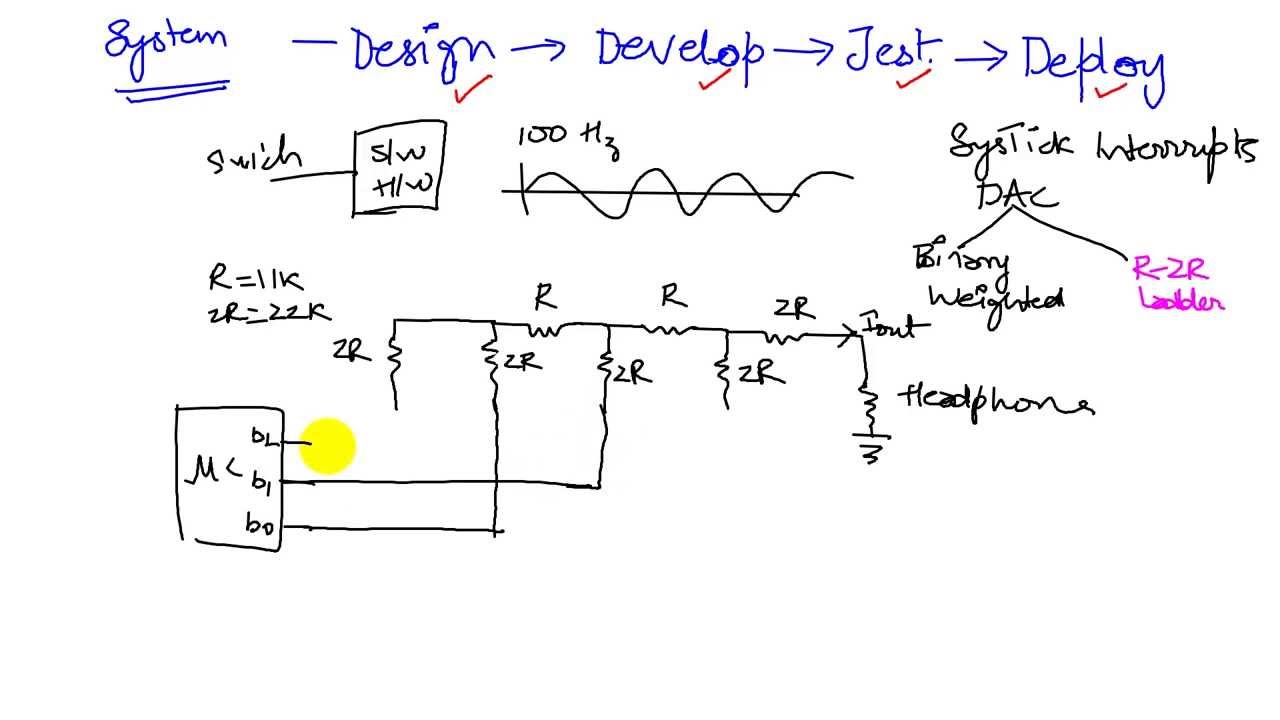 System — Design → Develop → Test. → Deploy
Swich
S/W
H/W
100 Hz
SysTick Interrupts
DAC
Binary
Weighted
R-2R
Ladder
R=11K
2R=22K
R
R
2R
Iout
2R
2R
2R
2R
Headphone
MC
b2
b1
b0